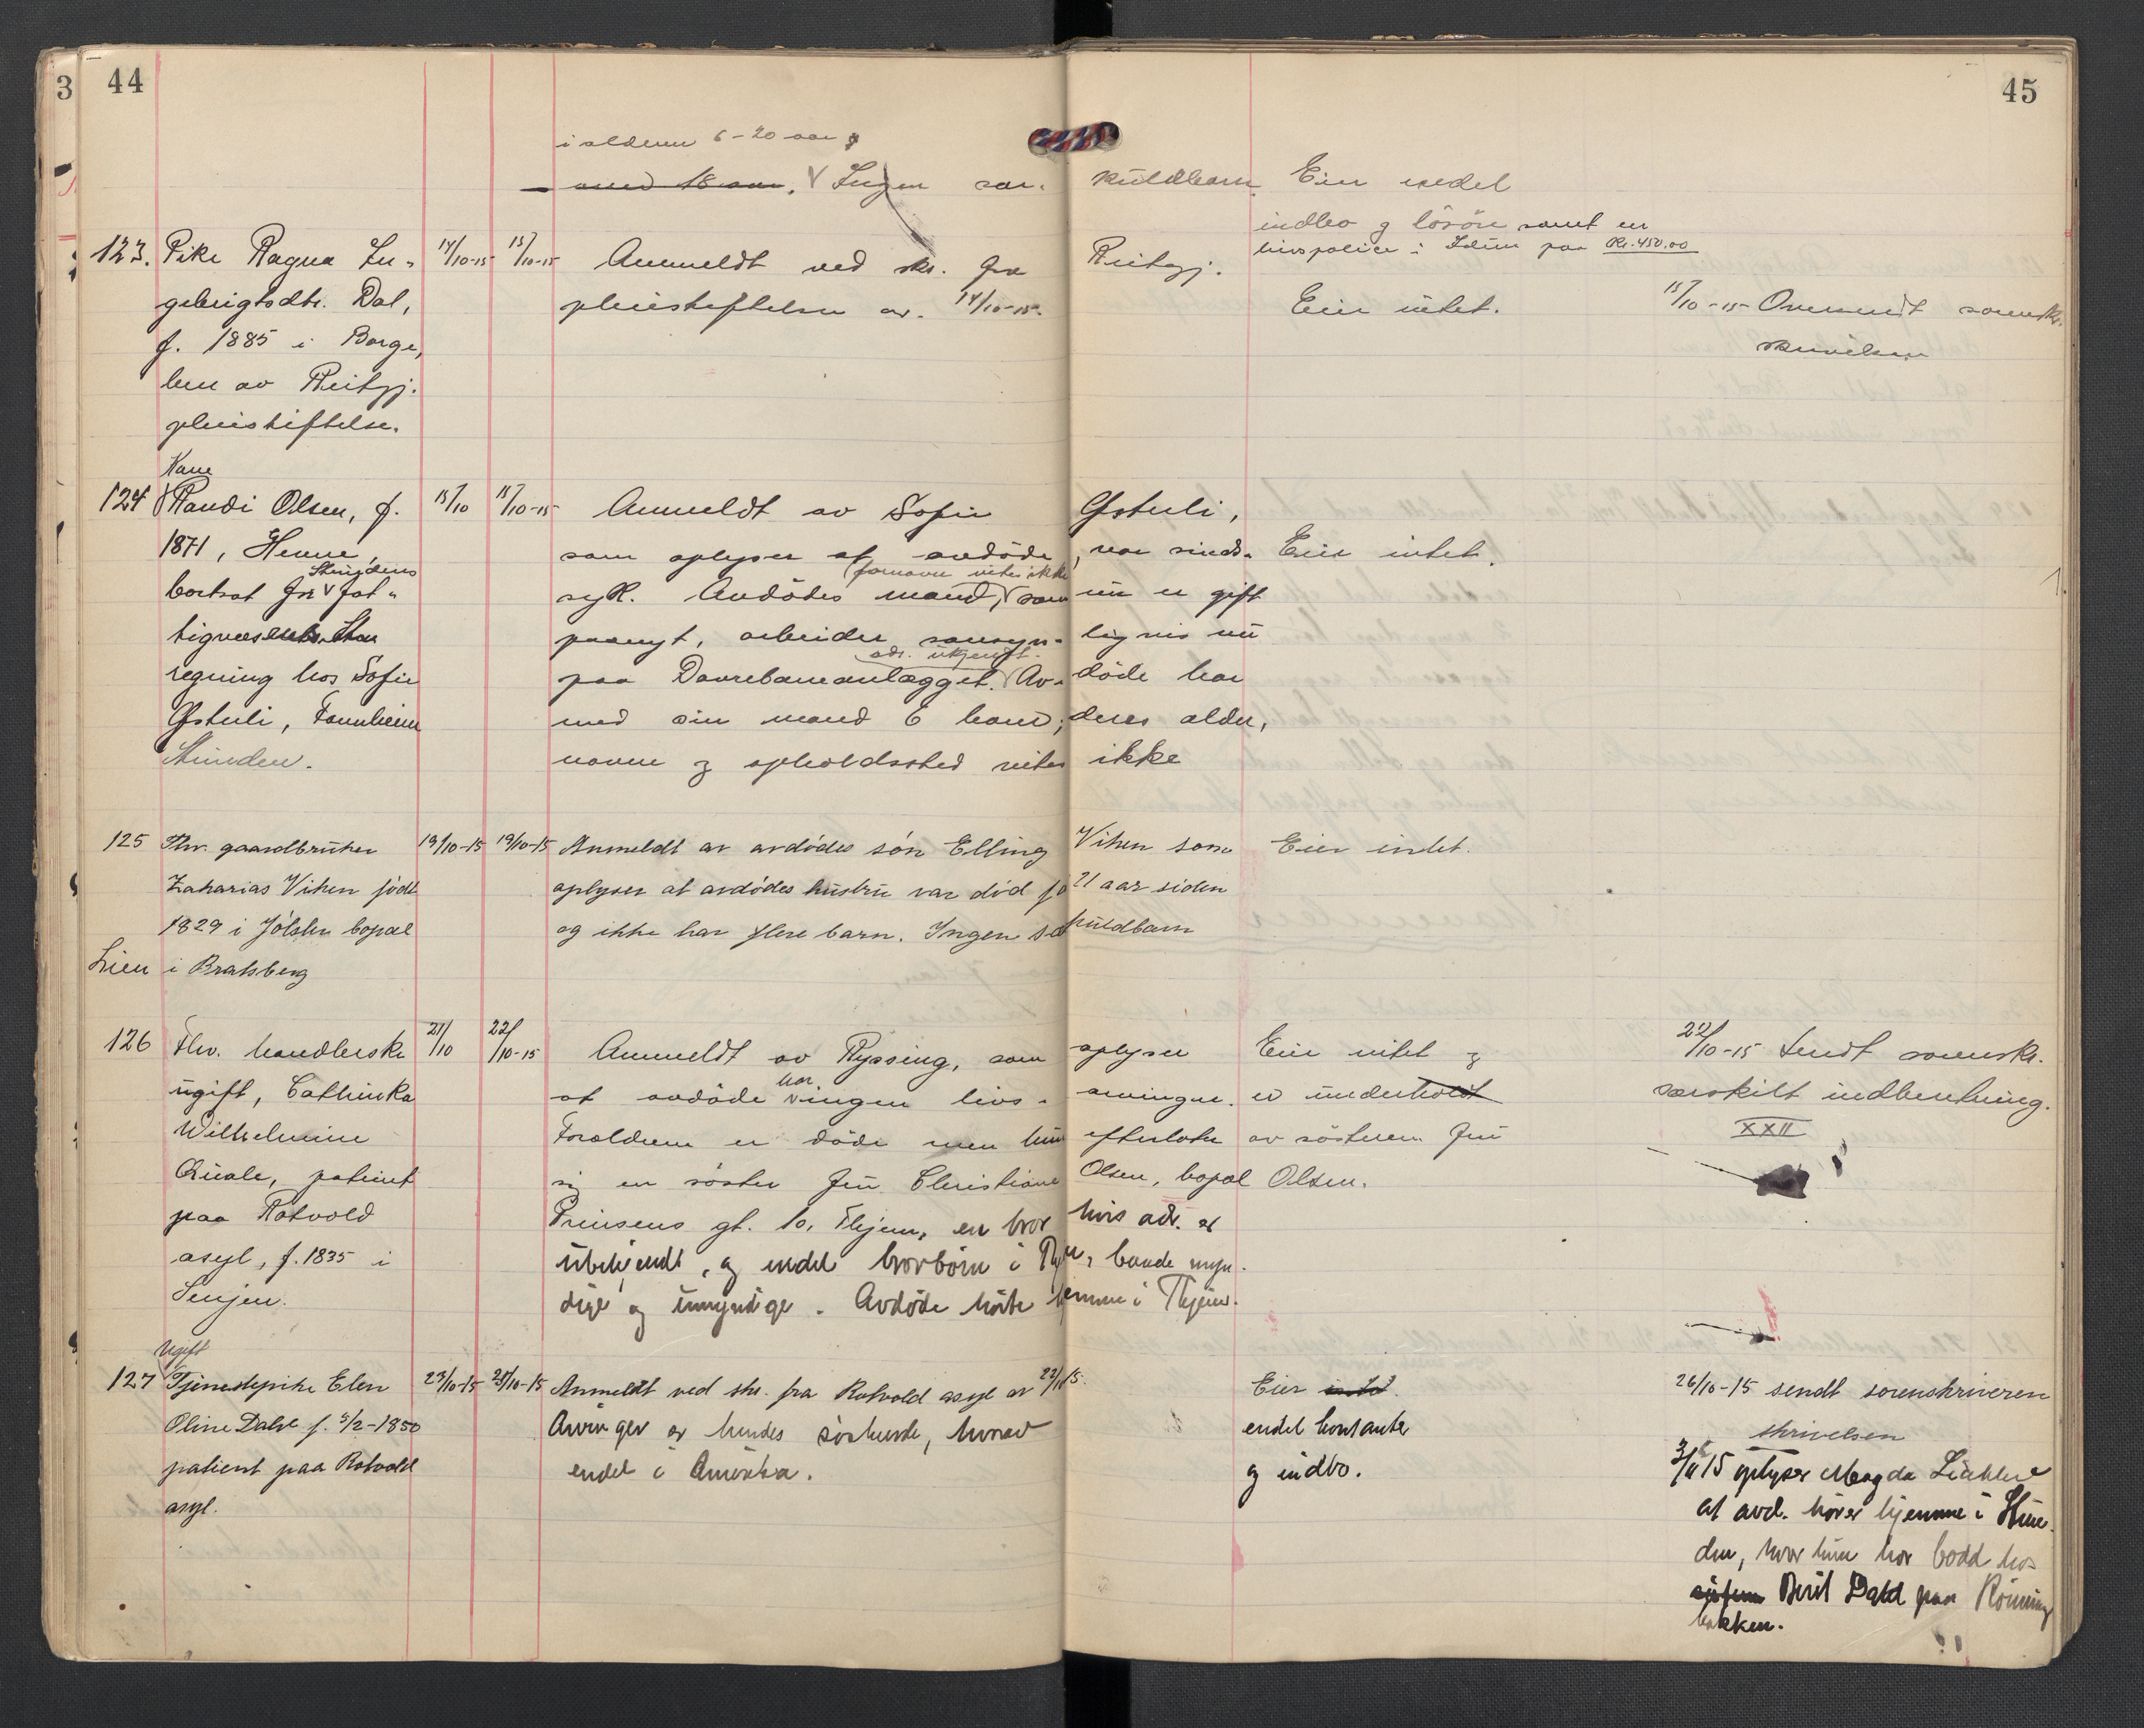 3 44
45
i alderen 6-20 aar og
Ingen sær-
kuldbarn. Eier endel
indbo og lösöre samt en
livspolice i Idun paa Kr. 450.00
123. Pike Ragna In-
gebrigtsdtr. Dal,
f. 1885 i Borge,
ben av Reitgj.
pleiestiftelse.
14/10-15 15/10-15 Anmeldt ved skr. fra Reitgj.
pleiestiftelsen av. 14/10-15.
Eier intet.
15/10-15 Oversendt sorenskr.
skrivelsen
Kone
124 Randi Olsen, f.
1871, Henne,
bortsat fra Strindens fat-
tigvæsens
regning hos Sofie
Østuli, Tannheim
Strinden.
15/10 15/10-15 Anmeldt av Sofie Østuli,
som oplyser at avdöde, var sinds-
syk. Avdödes mand, (fornavn vites ikke) som nu er gift
paanyt, arbeider sansyn-ligvis nu
paa Dovrebaneanlægget. adr. ukjendt. Av-döde har
med sin mand 6 barn; deres alder,
navne og opholdssted vites ikke
Eier intet.
125 Fhv. gaardbruker
Zakarias Viken født
1829 i Jölster bopæl
Lien i Bratsberg
19/10-15 19/10-15 Anmeldt av avdødes søn Elling Viken som
oplyser at avdødes hustru var død for 21 aar siden
og ikke har flere barn. Ingen særkuldbarn
Eier intet.
126 Fhv. handlerske
ugift, Cathinka
Wilhelmine
Quale, patient
paa Rotvold
asyl, f. 1835 i
Senjen.
21/10 22/10-15 Anmeldt av Ryssing, som oplyser
at avdöde har ingen livs-arvinger.
Foreldrene er döde men hun efterlater
sig en söster Fru Christiane Olsen, bopæl
Prinsens gt. 10, Thjem, en bror hvis adr. er
ubekjendt, og endel brorbörn i Thjem, baade myn-
dige og umyndige. Avdøde hörte hjemme i Thjem.
Eier intet og
er underholdt
av sösteren Fru
Olsen.
22/10-15 Sendt sorenskr.
særskilt indberetning.
XXII
Ugift
127 Tjenestepike Elen
Oline Dahl f. 5/2-1850
patient paa Rotvold
asyl.
23/10-15 25/10-15 Anmeldt ved skr. fra Rotvold asyl av 22/10 15.
Arvinger er hendes søskende, hvorav
endel i Amerika.
Eier intet.
endel kontanter
og indbo.
26/10-15 sendt sorenskriveren
skrivelsen
15 oplyser Magda
at avd. hører hjemme i Strin-
den, hvor hun har bodd hos
Berit Dahl paa Rönning
bakken.